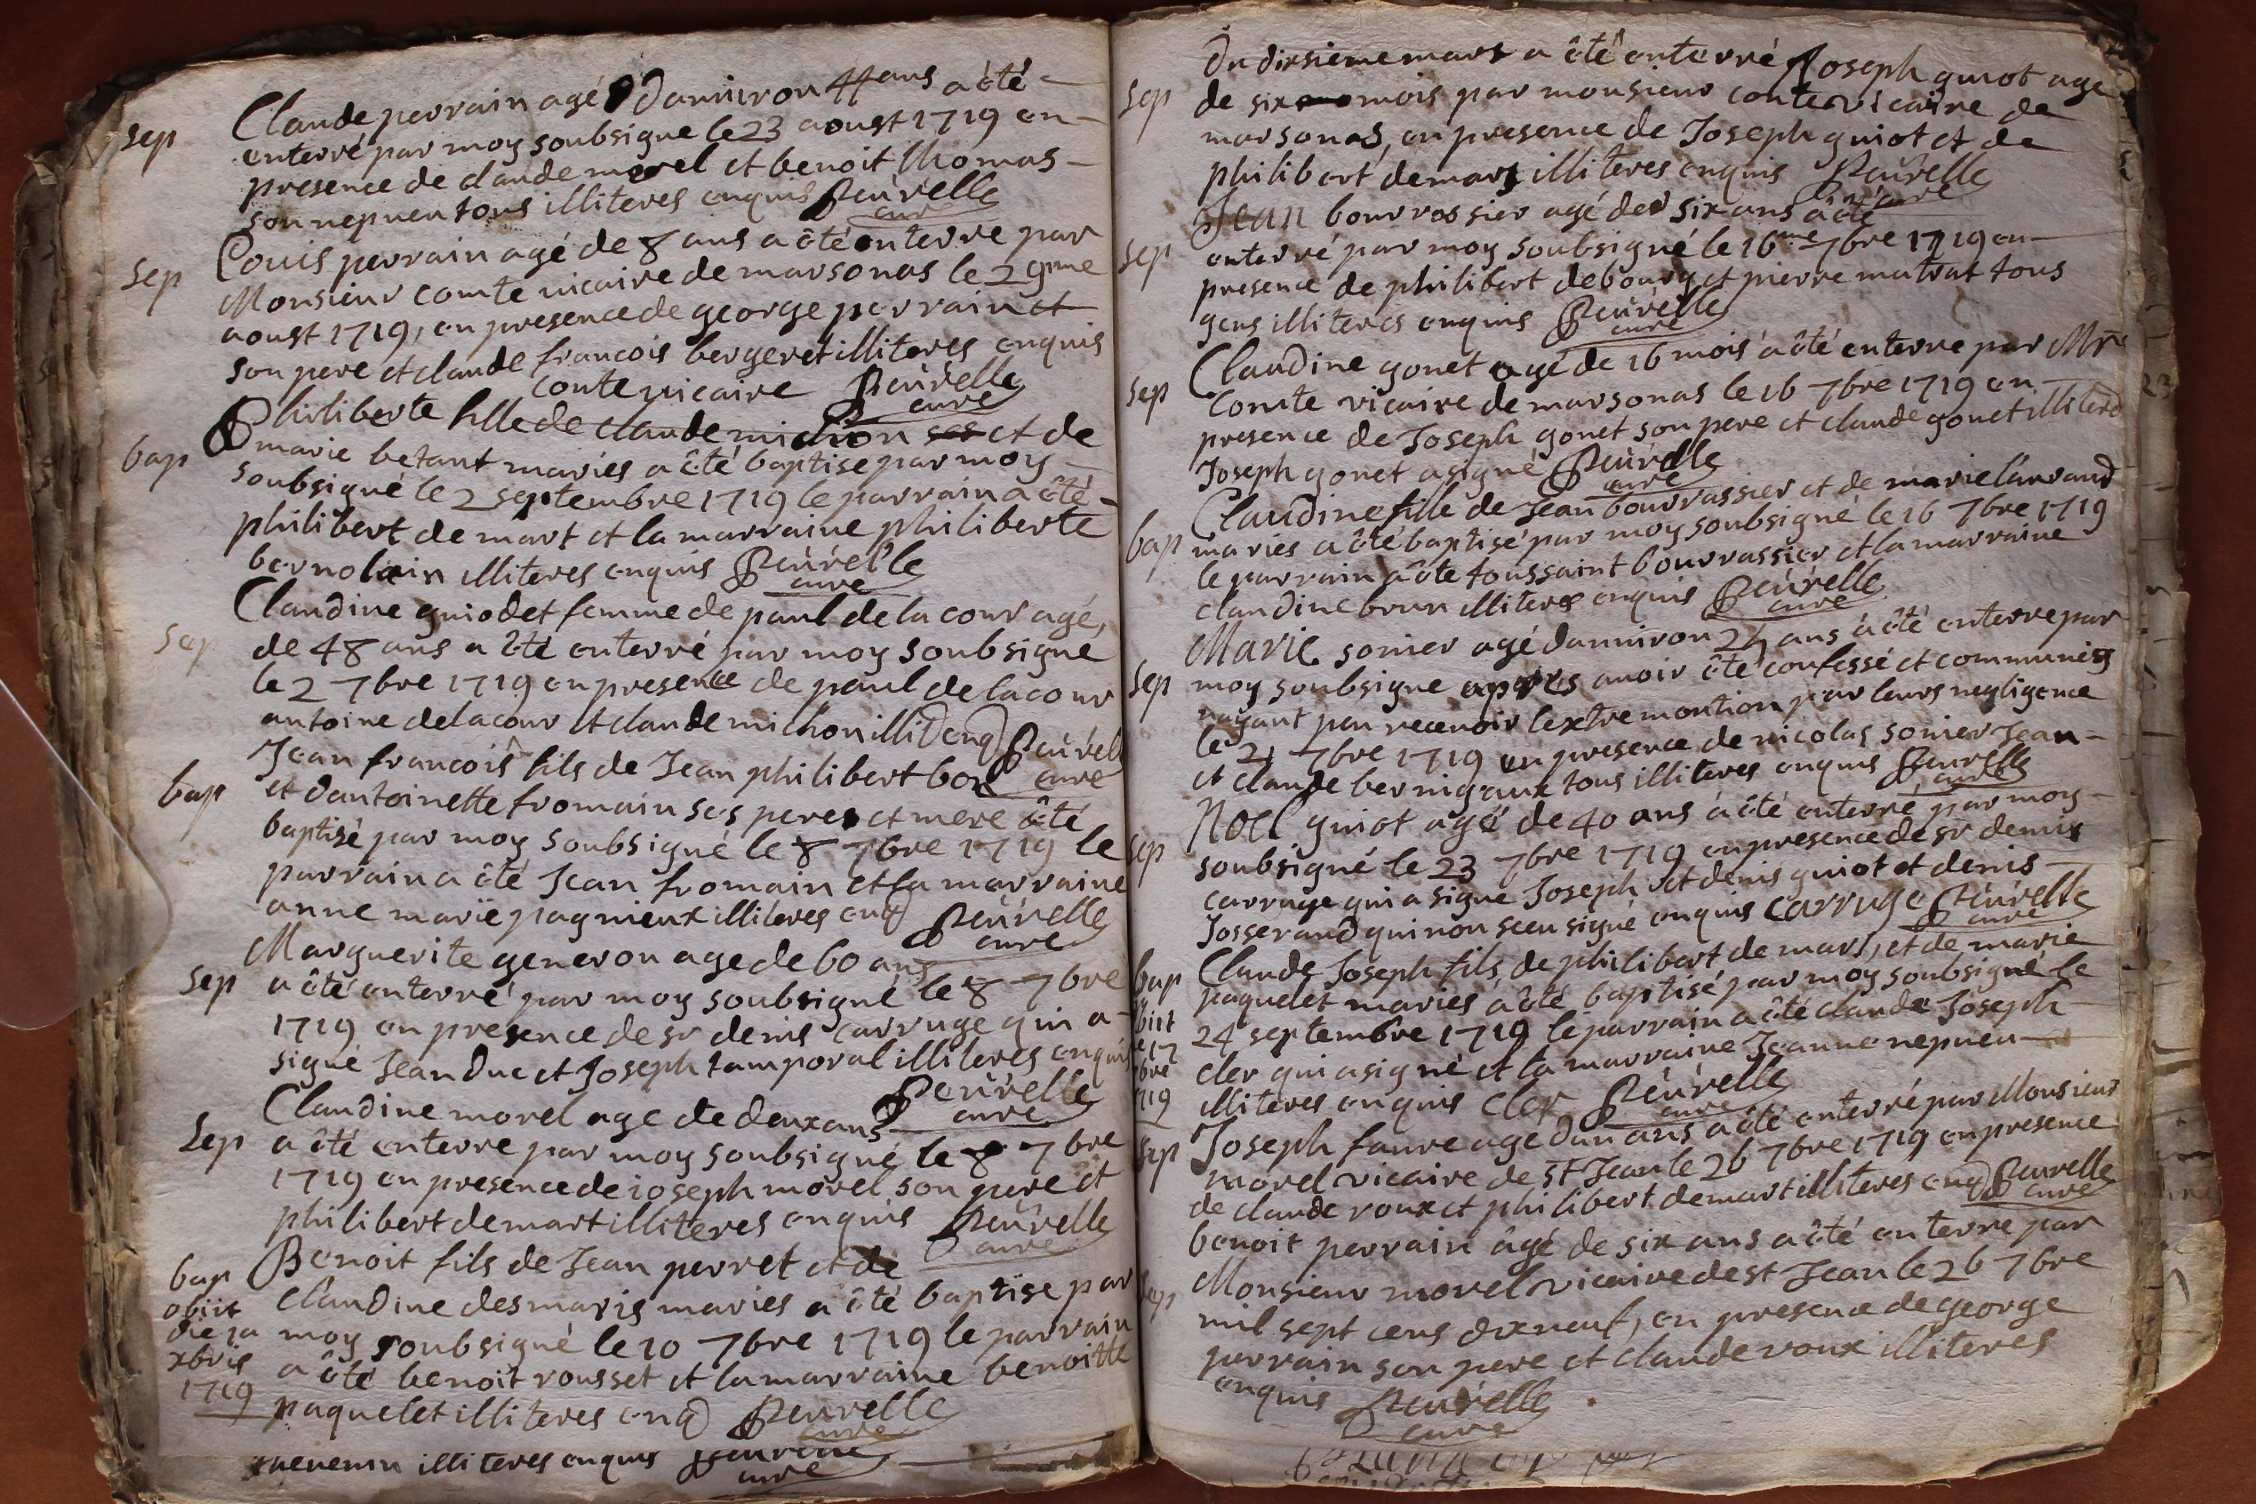 sep Claude perrain agé d'anniron 44 ans a ôté
enterré par moy soubsigne le 23 aoust 1719 en
presence de claude morel et benoit thomas
son nepueu tous illiteres enquis Peuvrelle
cure
sep Louis perrain agé de 8 ans a ôté enterre par
Monsieur comte uicaire de marsonas le 29me
aoust 1719, en presence de george perrain et
son pere et claude francois bergeret illiteres enquis
conte vicaire Peuvrelle
cure
bap Philiberte fille de claude michon et de
marie betant mariés a ôté baptise par moy
soubsigné le 2 septembre 1719 le parrain a ôté
philibert de mart et la marraine philiberte
bernolin illiteres enquis Peuvrelle
cure
sep Claudine guiodet femme de paul de la cour agé,
de 48 ans a ôté enterré par moy soubsigne
le 2 7bre 1719 en presence de paul de lacour
antoine delacour et claude michon illi) enq) Peuvrelle
cure
bap Jean francois fils de Jean philibert bon
et d'antoinette fromain ses peres et mere ôté
baptisé par moy soubsigné le 8 7bre 1719 le
parrain a ôté Jean fromain et la marraine
anne marie pagnieux illiteres enq) Peuvrelle
cure
sep Marguerite generon age de 60 ans
a ôté enterré par moy soubsigné le 8 7bre
1719 en presence de sr denis carruge qui a
signé Jean Duc et Joseph tamporal illiteres enquis
Peuvrelle
cure
Sep Claudine morel age de deux ans
a ôté enterre par moy soubsigné le 8 7bre
1719 en presence de ioseph morel son pere et
philibert demart illiteres enquis Peuvrelle
cure
bap Benoit fils de Jean perret et de
obiit Claudine desmaris maries a ôté baptise par
die 1a moy soubsigné le 10 7bre 1719 le parrain
xbris a ôté benoit rousset et la marraine benoitte
1719 paquelet illiteres enq) Peuvrelle
cure
illiteres enquis Peuvrelle
cure
Du dixsieme mars a ôté enterré Joseph guiot age
sep de six mois par monsieur conte vicaire de
marsonas, en presence de Joseph guiot et de
philibert demars illiteres enquis Peuvrelle
cure
Jean bourrossier agé de six ans a ôté
sep enterré par moy soubsigné le 16me 7bre 1719 en
presence de philibert debourg et pierre matrat tous
gens illiteres enquis Peuvrelle
cure
Claudine gonet agé de 16 mois a ôté enterre par Mr
sep Comte vicaire de marsonas le 16 7bre 1719 en
presence de Joseph gonet son pere et claude gonet illiteres
Joseph gonet a signé Peuvrelle
cure
Claudine fille de Jean bourrassier et de marie laurand
bap maries a ôté baptisé par moy soubsigné le 16 7bre 1719
le parrain a ôté toussaint bourrassier et la marraine
claudine brun illiteres enquis Peuvrelle
cure
Marie sonier agé d'anniron 24 ans a ôté enterre par
sep moy soubsigne apres auoir ôté confessé et communiés
nayant peu receuoir lextremontion par leurs negligence
le 21 7bre 1719 en presence de nicolas sonier Jean
et claude bernigaux tous illiteres enquis Peuvrelle
cure
Noel guiot agé de 40 ans a ôté enterré, par moy
sep soubsigné le 23 7bre 1719 en presence de sr denis
carruge qui a signe Joseph et denis guiot et denis
Josserand qui non sceu signé enquis carruge Peuvrelle
cure
bap Claude Joseph fils de philibert de mars, et de marie
paquelet mariés a ôté baptisé par moy soubsigné le
obiit 24 septembre 1719 le parrain a ôté claude Joseph
le 17 cler qui a signé et la marraine Jeanne nepueu
bre illiteres enquis cler Peuvrelle
1719 cure
sep Joseph faure age d'un ans a ôté enterré par Monsieur
morel vicaire de st Jean le 26 7bre 1719 en presence
de claude roux et philibert demart illiteres enq) Peuvrelle
cure
benoit perrain âgé de six ans a ôté enterre par
sep Monsieur morel vicaire de st Jean le 26 7bre
mil sept cens dixneuf, en presence de george
perrain son pere et claude roux illiteres
enquis Peuvrelle
cure